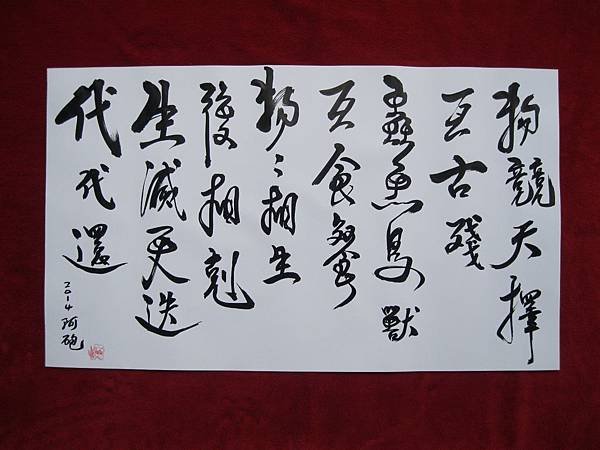 物競天擇
亙古殘
蟲魚鳥獸
互食餐
物〻相生
復相剋
生滅更迭
代代還
2014 阿砲